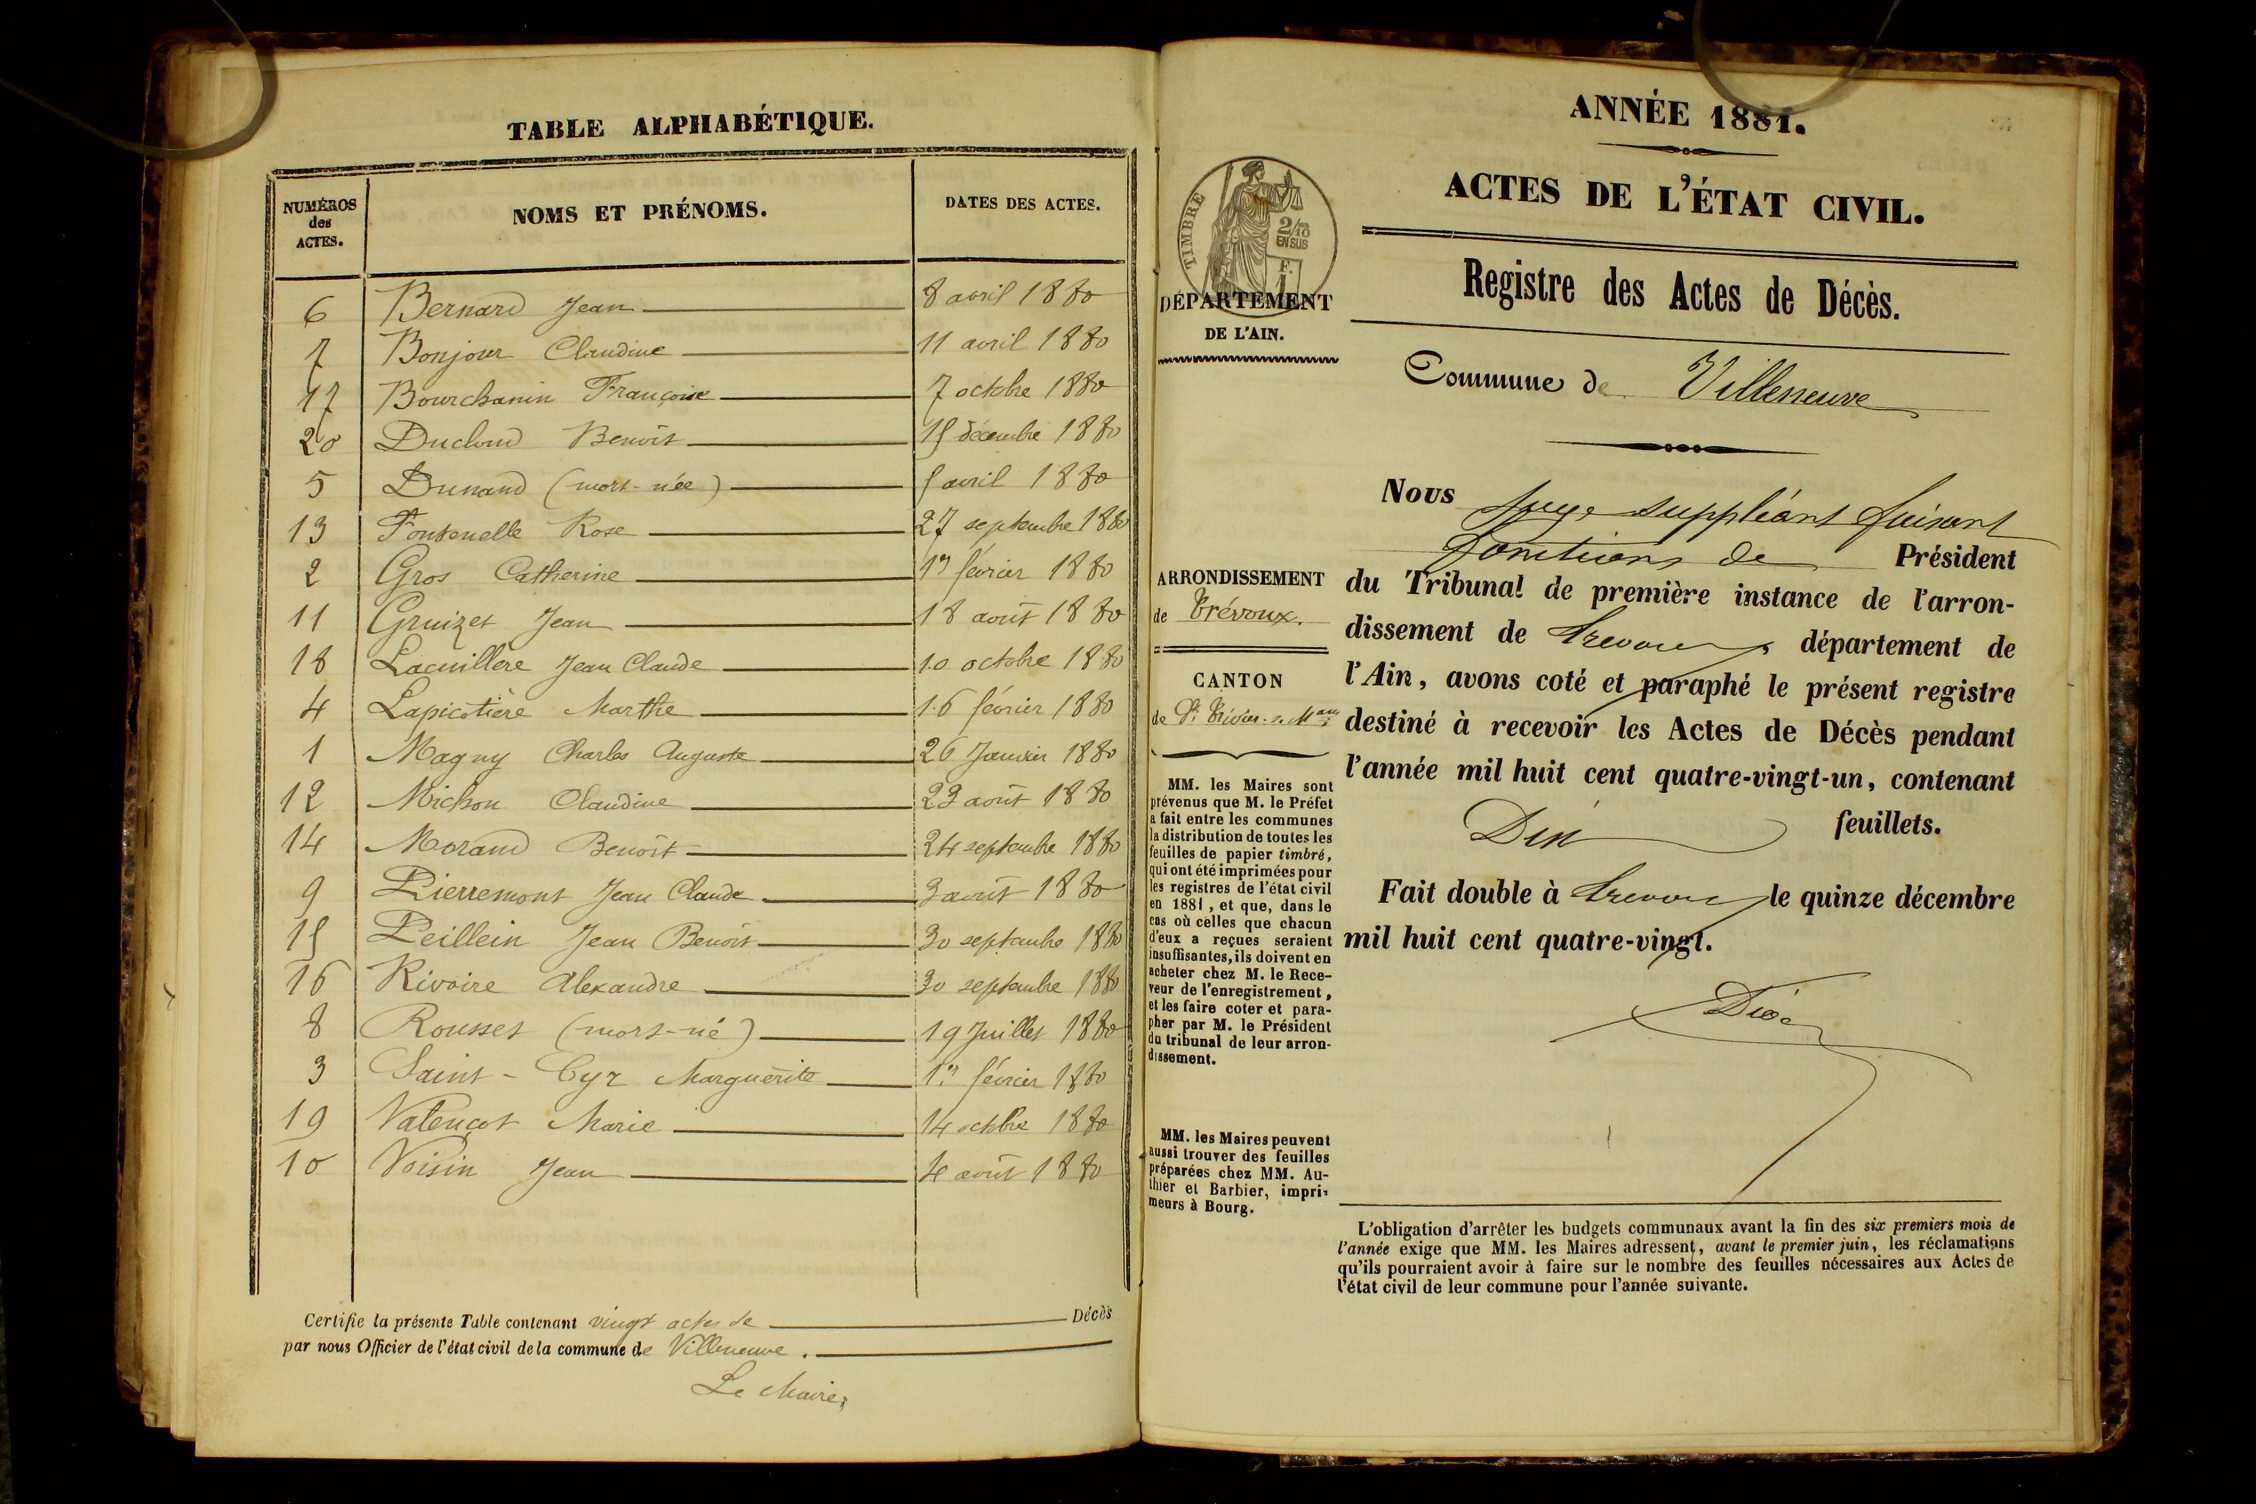 TABLE ALPHABÉTIQUE.
NUMÉROS des ACTES. NOMS ET PRÉNOMS. DATES DES ACTES.
6 Bernard Jean 8 avril 1880
7 Bonjour Claudine 11 avril 1880
17 Bourchanin Françoise 7 octobre 1880
20 Ducloud Benoît 15 décembre 1880
5 Dunand (mort-née) 5 avril 1880
13 Fontenelle Rose 27 septembre 1880
2 Gros Catherine 1er février 1880
11 Gruizet Jean 18 août 1880
18 Lacuillère Jean Claude 10 octobre 1880
4 Lapicotière Marthe 16 février 1880
1 Magny Charles Auguste 26 Janvier 1880
12 Michon Claudine 23 août 1880
14 Morand Benoît 24 septembre 1880
9 Pierremont Jean Claude 3 août 1880
15 Peillein Jean Benoît 30 septembre 1880
16 Rivoire Alexandre 30 septembre 1880
8 Rousset (mort-né) 19 Juillet 1880
3 Saint-Cyr Marguerite 1er février 1880
19 Valençot Marie 14 octobre 1880
10 Voisin Jean 4 août 1880
Certifie la présente Table contenant vingt actes de Décès
par nous Officier de l'état civil de la commune de Villeneuve.
Le Maire,
TIMBRE
2/10
EN SUS
F.
1
DÉPARTEMENT
DE L'AIN.
ARRONDISSEMENT
de Trévoux.
CANTON
de St Trivier s. Mans
MM. les Maires sont
prévenus que M. le Préfet
a fait entre les communes
la distribution de toutes les
feuilles de papier timbré,
qui ont été imprimées pour
les registres de l'état civil
en 1881, et que, dans le
cas où celles que chacun
d'eux a reçues seraient
insuffisantes, ils doivent en
acheter chez M. le Rece-
veur de l'enregistrement,
et les faire coter et para-
pher par M. le Président
du tribunal de leur arron-
dissement.
MM. les Maires peuvent
aussi trouver des feuilles
préparées chez MM. Au-
thier et Barbier, impri-
meurs à Bourg.
ANNÉE 1881.
ACTES DE L'ÉTAT CIVIL.
Registre des Actes de Décès.
Commune de Villeneuve
Nous Juge suppléant faisant
fonctions de Président
du Tribunal de première instance de l'arron-
dissement de Trevoux, département de
l'Ain, avons coté et paraphé le présent registre
destiné à recevoir les Actes de Décès pendant
l'année mil huit cent quatre-vingt-un, contenant
Dix feuillets.
Fait double à Trevoux le quinze décembre
mil huit cent quatre-vingt.
L'obligation d'arrêter les budgets communaux avant la fin des six premiers mois de
l'année exige que MM. les Maires adressent, avant le premier juin, les réclamations
qu'ils pourraient avoir à faire sur le nombre des feuilles nécessaires aux Actes de
l'état civil de leur commune pour l'année suivante.